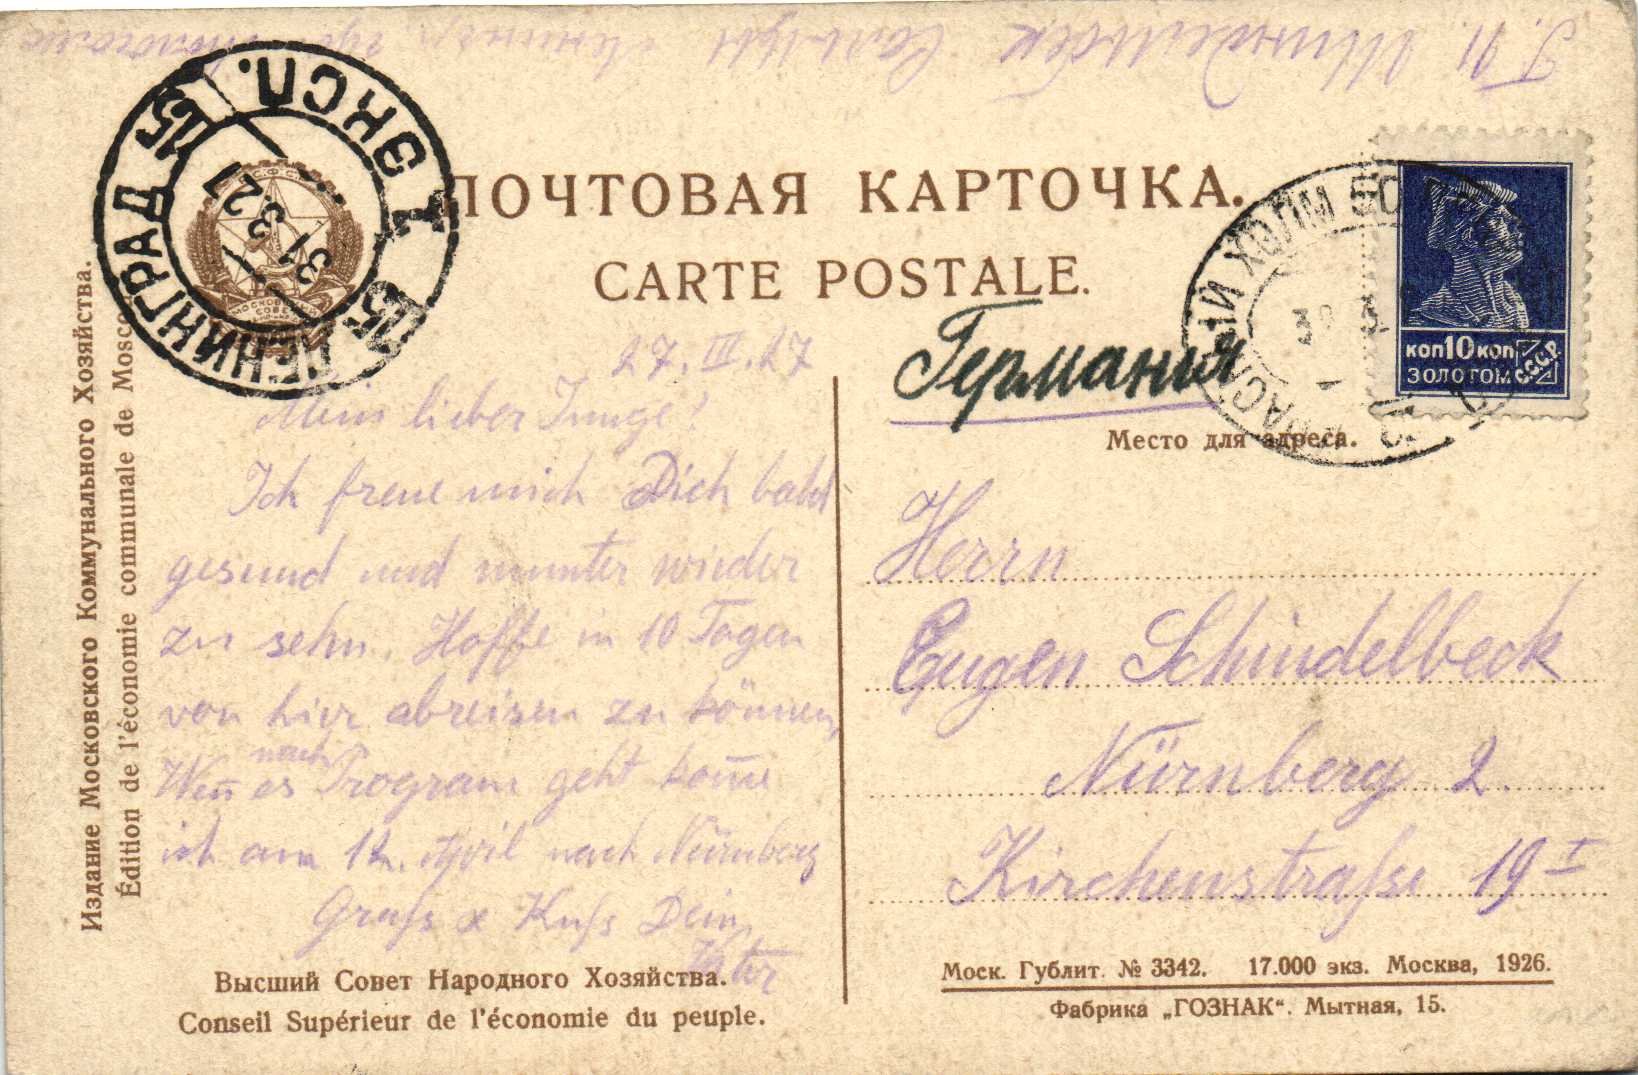 ПОЧТОВАЯ КАРТОЧКА.
CARTE POSTALE.
ЛЕНИНГРАД 15 ЭКСП. 15
31 3 27
КРАСНЫЙ ХОЛМ
КОП 10 КОП
ЗОЛОТОМ
СССР
Германия
Место для адреса.
27. III. 27
Mein lieber Junge!
Ich freue mich Dich bald
gesund und munter wieder
zu sehn. Hoffe in 10 Tagen
von hier abreisen zu können,
Weñ es nach Program geht kom̄e
ich am 12. April nach Nürnberg
Gruſs & Kuſs Dein
Vater
Herrn
Eugen Schindelbeck
Nürnberg 2.
Kirchenstraſse 19 I
Издание Московского Коммунального Хозяйства.
Édition de l'économie communale de Moscou
Высший Совет Народного Хозяйства.
Conseil Supérieur de l'économie du peuple.
Моск. Гублит. № 3342. 17.000 экз. Москва, 1926.
Фабрика „ГОЗНАК“. Мытная, 15.